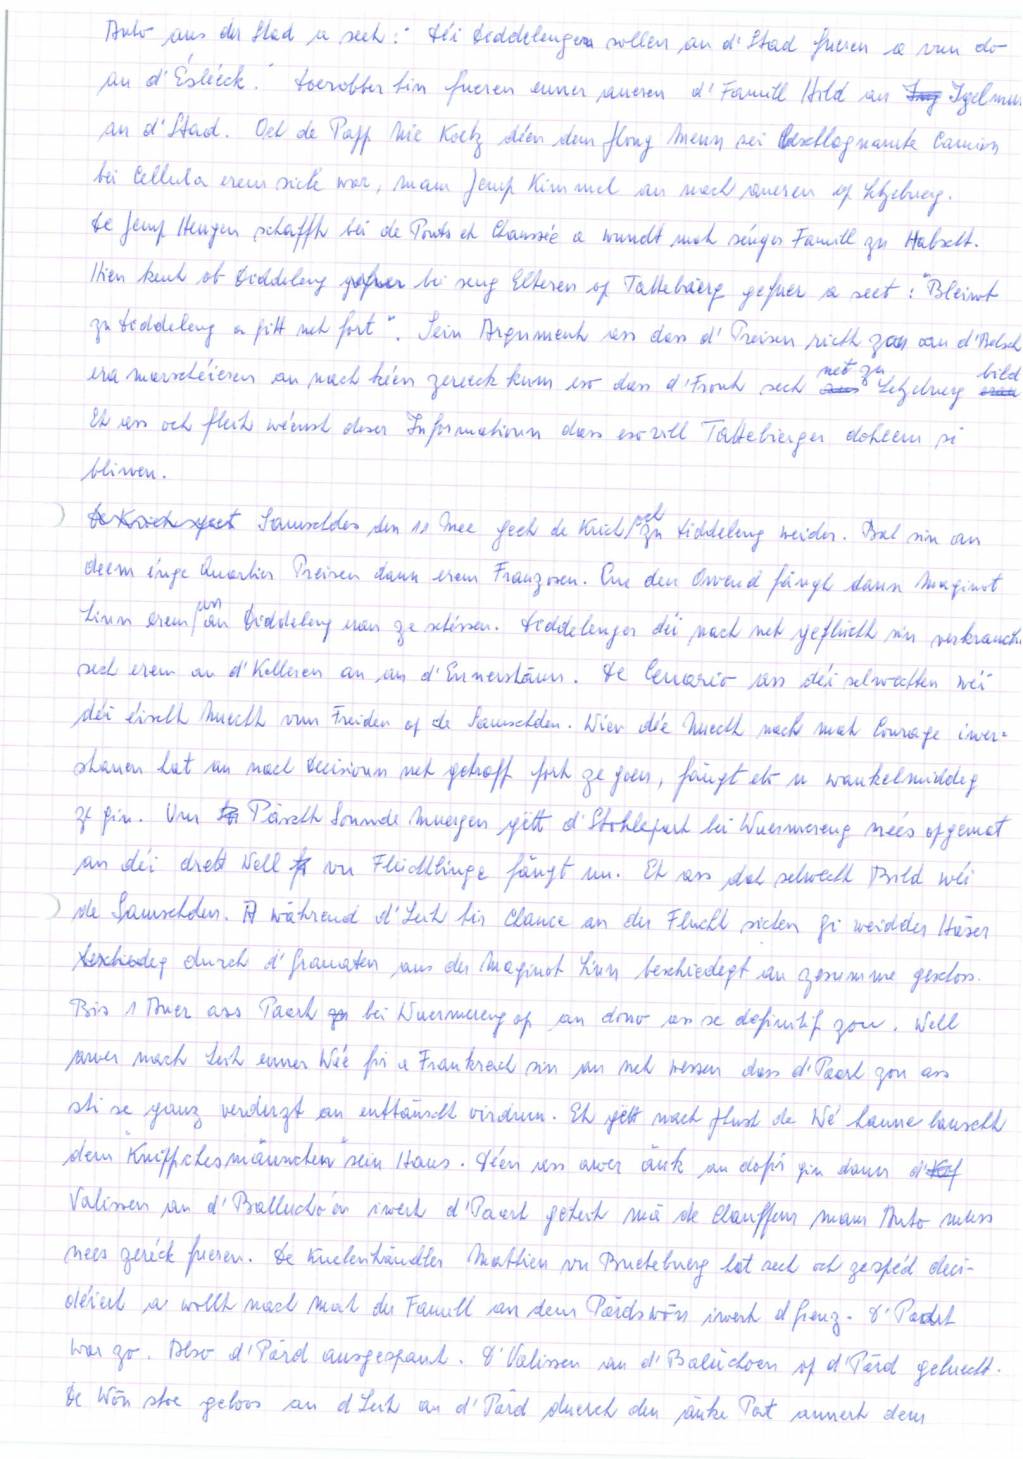 Auto aus der Stad a seet: "Déi Diddelenger sollen an d'Stad fueren a vun do
an d'Éisléck." Doropper hin fueren ënner aneren d'Famill Hild an Igelmu
an d'Stad. Och de Papp Nic Koetz déen dem Jong Menn sei beschlagnamte Camion
bei Cellula erem siche war, mam Jemp Kimmel an nach aneren op Lëtzebuerg.
De Jemp Hengen schafft bei de Ponts et Chaussée a wunnt mat senger Famill zu Habscht.
Hien kennt ob Diddeleng bei seng Elteren op Tattebierg gefuer a seet: "Bleiwt
zu Diddeleng a gitt net fort". Sein Argument ass dass d'Preisen richt an d'Belsch
era marschéieren an nach kéen zereck kum eso dass d'Front sech net zu Letzebuerg bild
Et ass och fleit wéenst deser Informatioun dass esovill Tattebierger doheem si
bliwen.
Samschdes den 11 Mee geet de Krich och zu Diddeleng weider. Bal sin an
deem enge Quartier Preisen dann erem Franzosen. Ëm den Owend fängt dann Maginot
Linn erem un an Diddeleng eran ze schéissen. Diddelenger déi nach net geflücht sin verkrauche
sech erem an d'Kelleren an an d'Ënnerstänn. De Scenario ass déi selwechten wéi
déi éischt Nuecht vum Freiden op de Samschden. Wien dée Nuecht nach mat Courage iwer-
stanen hat an nach Decisioun net getraff fort ze goen, fängt elo u wankelmiddeg
ze gin. Um Päischt Sonnde Muergen gëtt d'Stahlepaart bei Wuermereng nees opgemat
an déi drett Well vu Flüchtlinge fängt un. Et ass dat selwecht Bild wéi
de Samschden. A während d'Leit hir Chance an der Flucht sichen gi weider Haiser
durch d'Granaten aus der Maginot Linn beschiedegt an zesumme geschoss.
Bis 1 Auer ass Paart bei Wuermereng op an dono ass se definitif zou. Well
awer nach Leit ënner Wée fir a Frankreich sin an net wessen dass d'Paart zou ass
sti se ganz verduzt an enttäuscht virdrun. Et gëtt nach just de Wé hannelaanscht
dem "Kniffchesmännchen" sein Haus. Déen ass awer enk an dofir gin dann d'
Valissen an d'Balluchoën iwert d'Paart geheit mä de Chauffeur mam Auto muss
nees zeréck fueren. De Kuelenhändler Mathieu vu Buerebuerg hat sech och zespéit deci-
déiert a wollt nach mat der Famill an dem Pärdswôn iwert d'Grenz. D'Paart
war zo. Also d'Pärd ausgespant. D'Valissen an d'Baluchoen op d'Pärd gelueht.
De Wôn stoe geloos an d'Leit an d'Pärd duerch den enke Pat annert dem